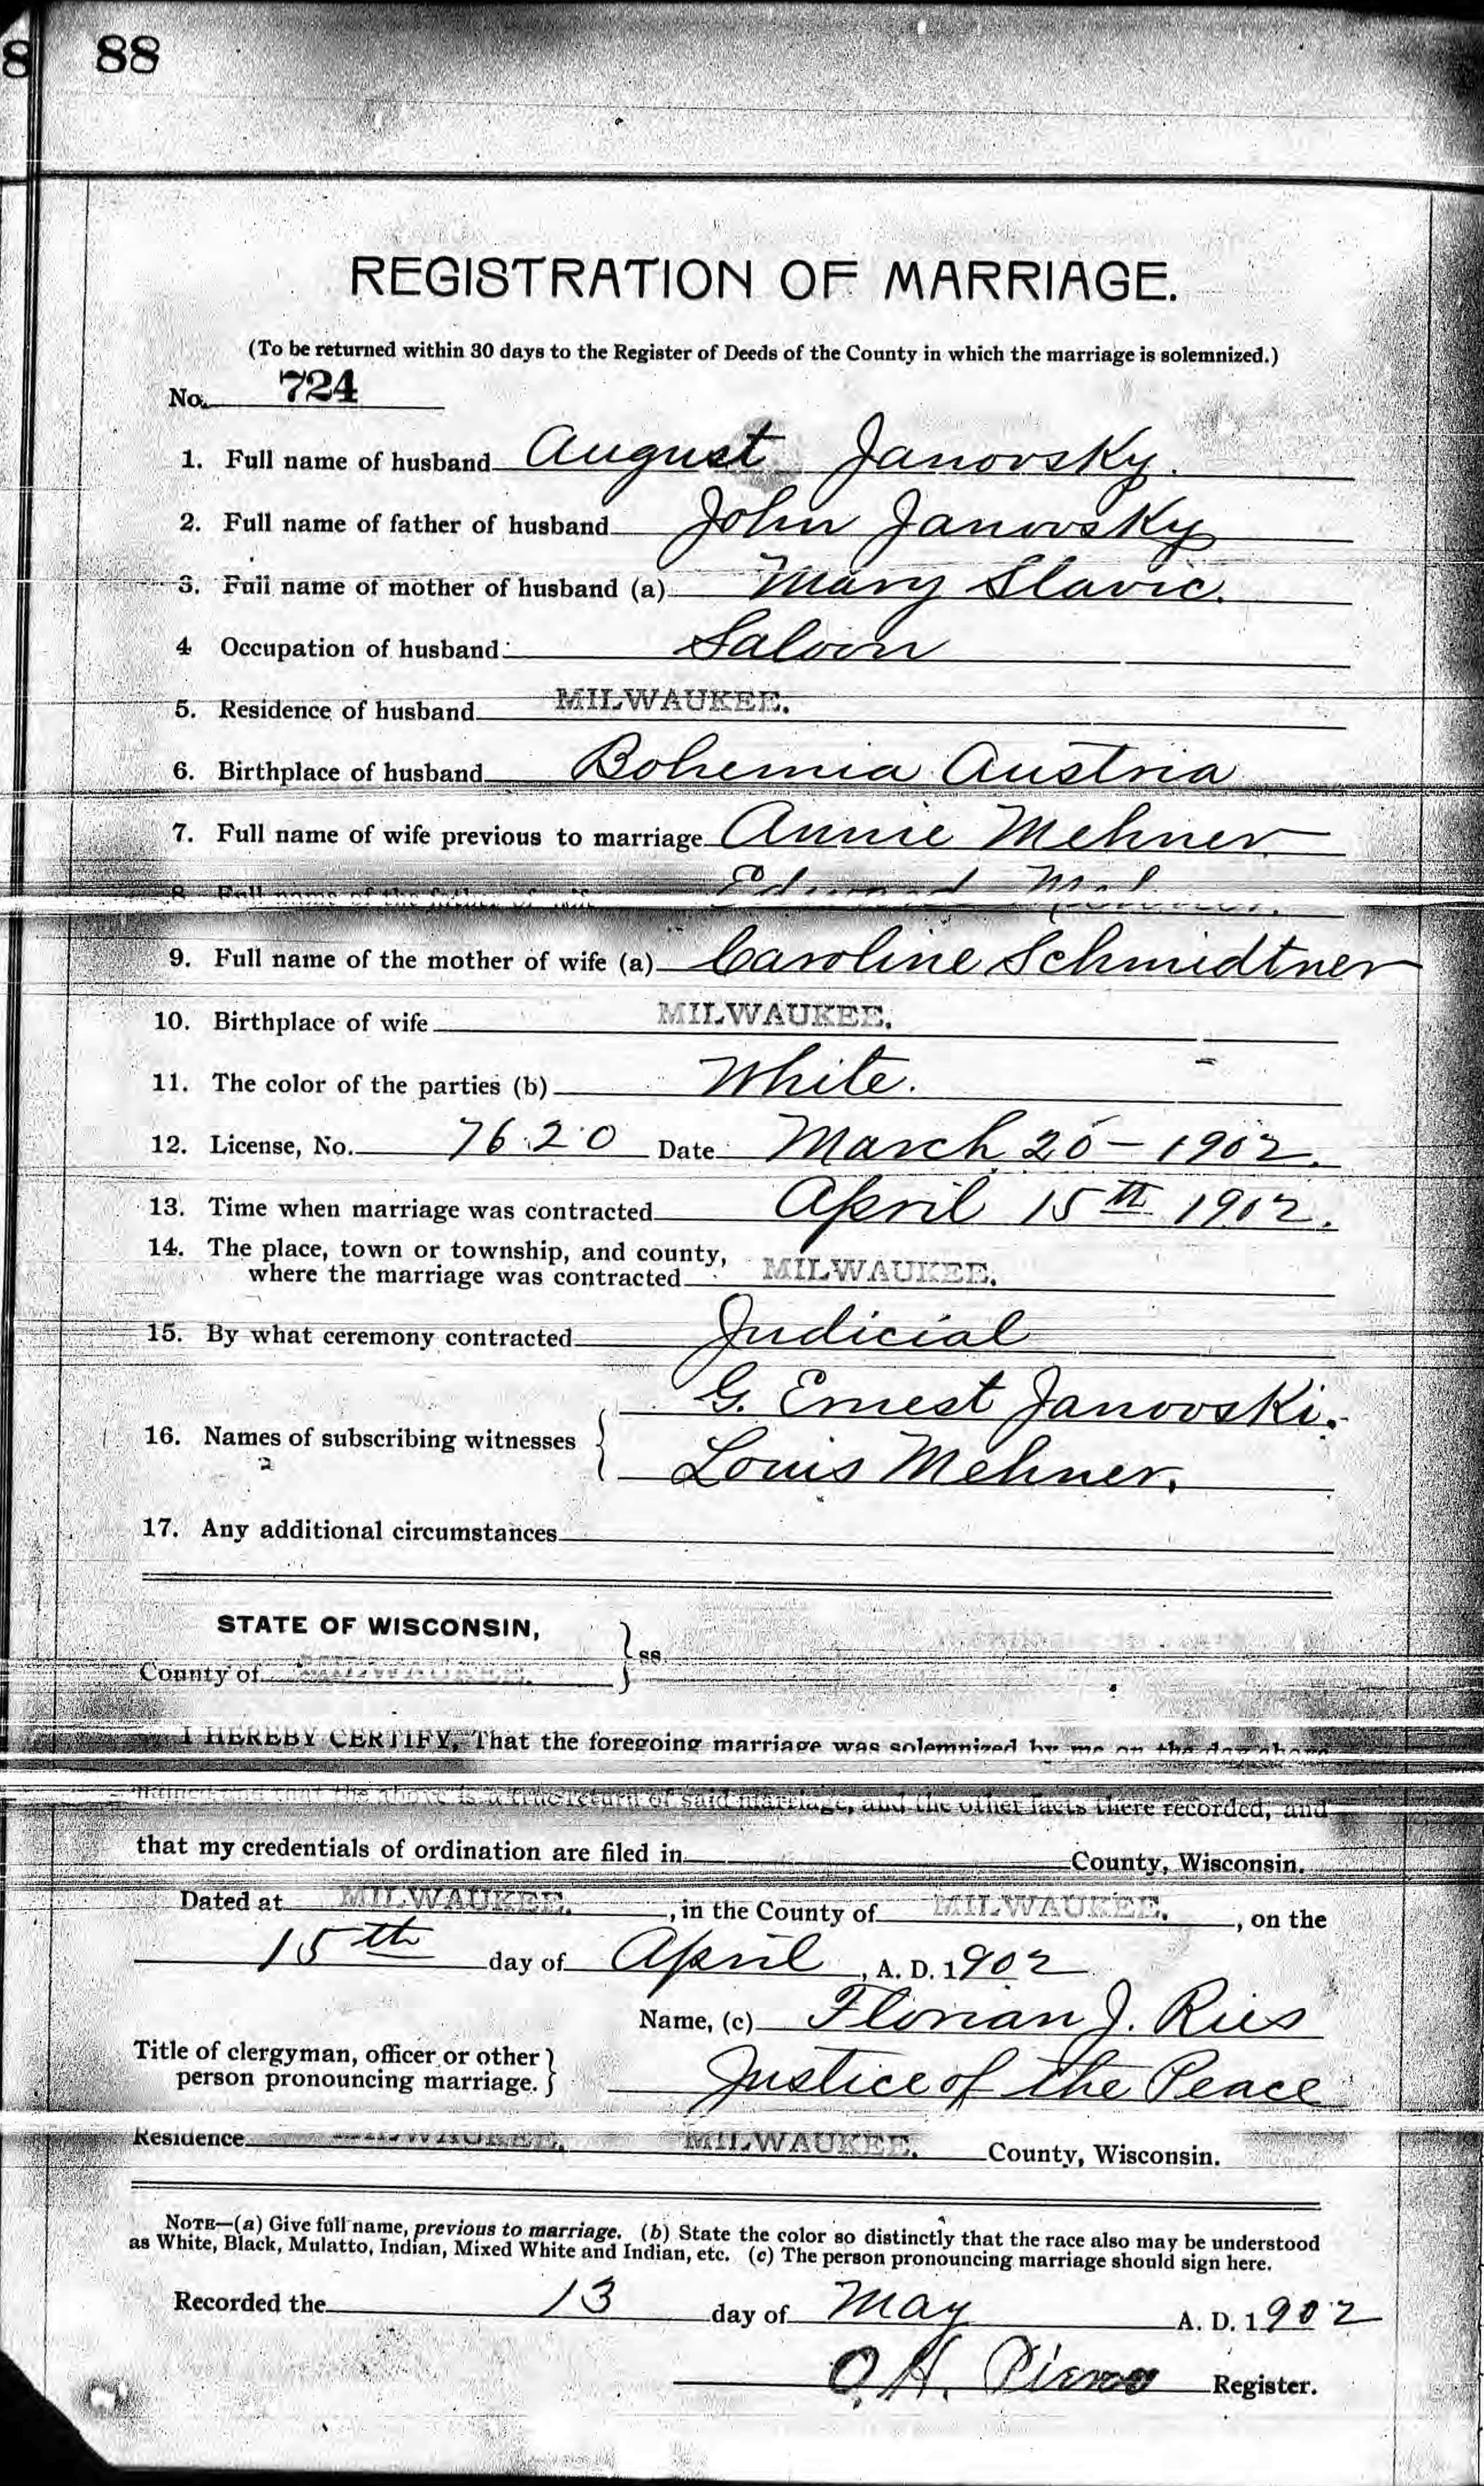 8 88
REGISTRATION OF MARRIAGE.
(To be returned within 30 days to the Register of Deeds of the County in which the marriage is solemnized.)
No. 724
1. Full name of husband August Janovsky.
2. Full name of father of husband John Janovsky
3. Full name of mother of husband (a) Mary Slavic.
4 Occupation of husband Saloon
5. Residence of husband MILWAUKEE.
6. Birthplace of husband Bohemia Austria
7. Full name of wife previous to marriage Annie Mehner
8. Full name of the father of wife
9. Full name of the mother of wife (a) Caroline Schmidtner
10. Birthplace of wife MILWAUKEE.
11. The color of the parties (b) White.
12. License, No. 7620 Date March 25-1902.
13. Time when marriage was contracted April 15th 1902.
14. The place, town or township, and county,
where the marriage was contracted MILWAUKEE.
15. By what ceremony contracted Judicial
G. Ernest Janovski.
16. Names of subscribing witnesses
Louis Mehner,
17. Any additional circumstances
STATE OF WISCONSIN,
County of MILWAUKEE. } ss
I HEREBY CERTIFY, That the foregoing marriage was solemnized by me on the day above
named and that the above is a true return of said marriage, and the other facts there recorded, and
that my credentials of ordination are filed in County, Wisconsin.
Dated at MILWAUKEE., in the County of MILWAUKEE., on the
15th day of April, A. D. 1902
Name, (c) Florian J. Ries
Title of clergyman, officer or other
person pronouncing marriage. } Justice of the Peace
Residence MILWAUKEE. MILWAUKEE. County, Wisconsin.
NOTE—(a) Give full name, previous to marriage. (b) State the color so distinctly that the race also may be understood
as White, Black, Mulatto, Indian, Mixed White and Indian, etc. (c) The person pronouncing marriage should sign here.
Recorded the 13 day of May A. D. 1902
O. H. Register.